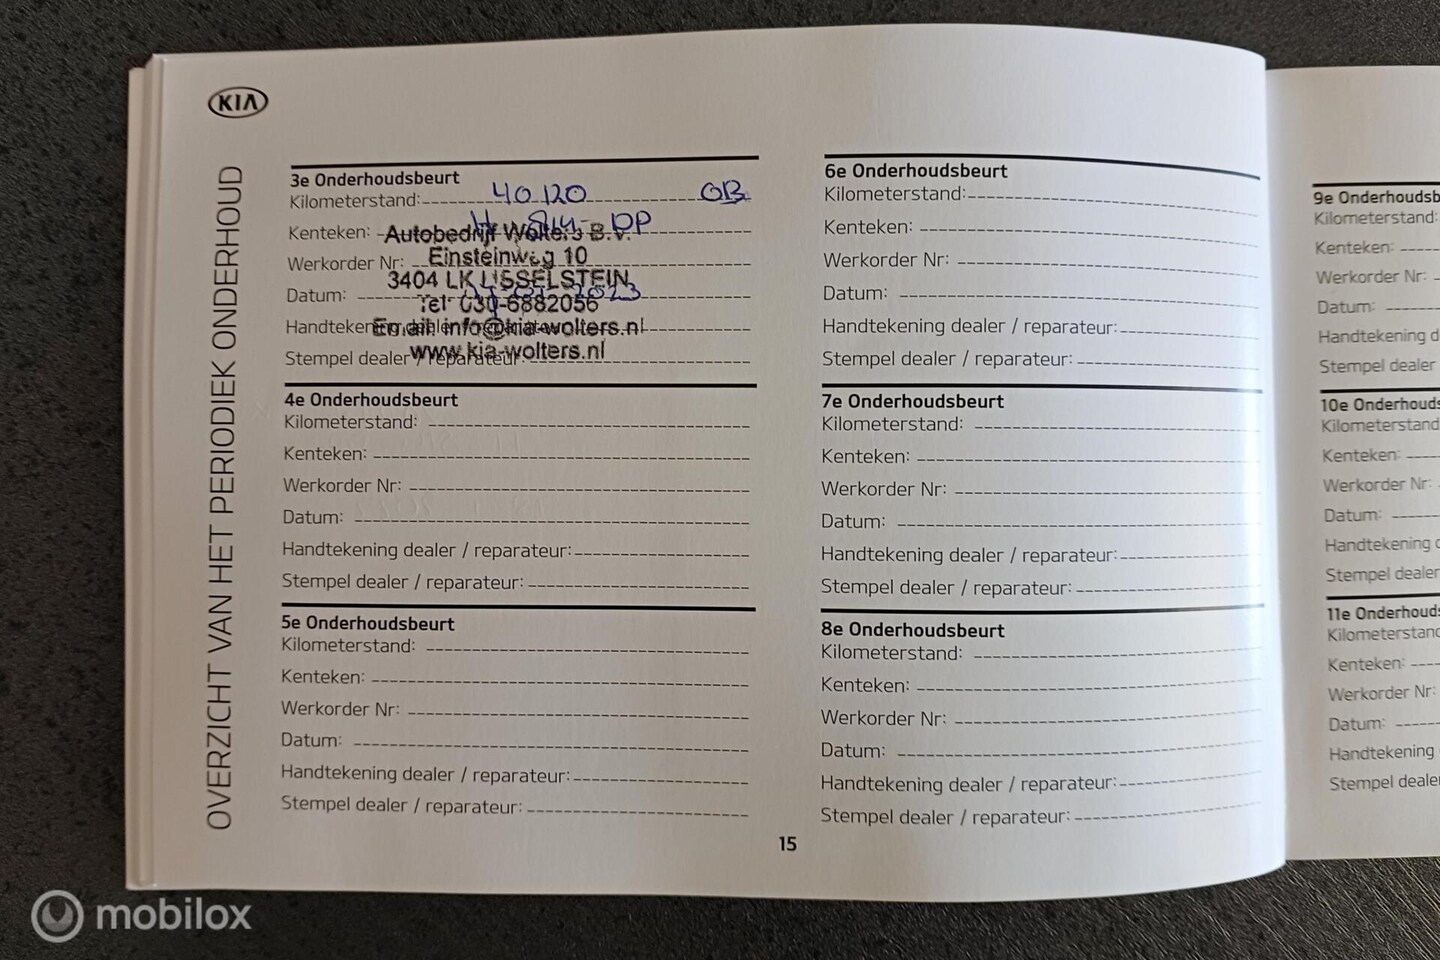 KIA
OVERZICHT VAN HET PERIODIEK ONDERHOUD
3e Onderhoudsbeurt
Kilometerstand: 40120 OB
Kenteken: DP
Autobedrijf Wolters B.V.
Werkorder Nr:
Einsteinweg 10
3404 LK IJSSELSTEIN
Datum: 2023
Tel: 030-6882056
Handtekening dealer / reparateur:
Email: info@kia-wolters.nl
Stempel dealer / reparateur:
www.kia-wolters.nl
4e Onderhoudsbeurt
Kilometerstand:
Kenteken:
Werkorder Nr:
Datum:
Handtekening dealer / reparateur:
Stempel dealer / reparateur:
5e Onderhoudsbeurt
Kilometerstand:
Kenteken:
Werkorder Nr:
Datum:
Handtekening dealer / reparateur:
Stempel dealer / reparateur:
6e Onderhoudsbeurt
Kilometerstand:
Kenteken:
Werkorder Nr:
Datum:
Handtekening dealer / reparateur:
Stempel dealer / reparateur:
7e Onderhoudsbeurt
Kilometerstand:
Kenteken:
Werkorder Nr:
Datum:
Handtekening dealer / reparateur:
Stempel dealer / reparateur:
8e Onderhoudsbeurt
Kilometerstand:
Kenteken:
Werkorder Nr:
Datum:
Handtekening dealer / reparateur:
Stempel dealer / reparateur:
15
9e Onderhoudsb
Kilometerstand:
Kenteken:
Werkorder Nr:
Datum:
Handtekening d
Stempel dealer
10e Onderhouds
Kilometerstand
Kenteken:
Werkorder Nr:
Datum:
Handtekening d
Stempel dealer
11e Onderhouds
Kilometerstand
Kenteken:
Werkorder Nr:
Datum:
Handtekening
Stempel dealer
mobilox